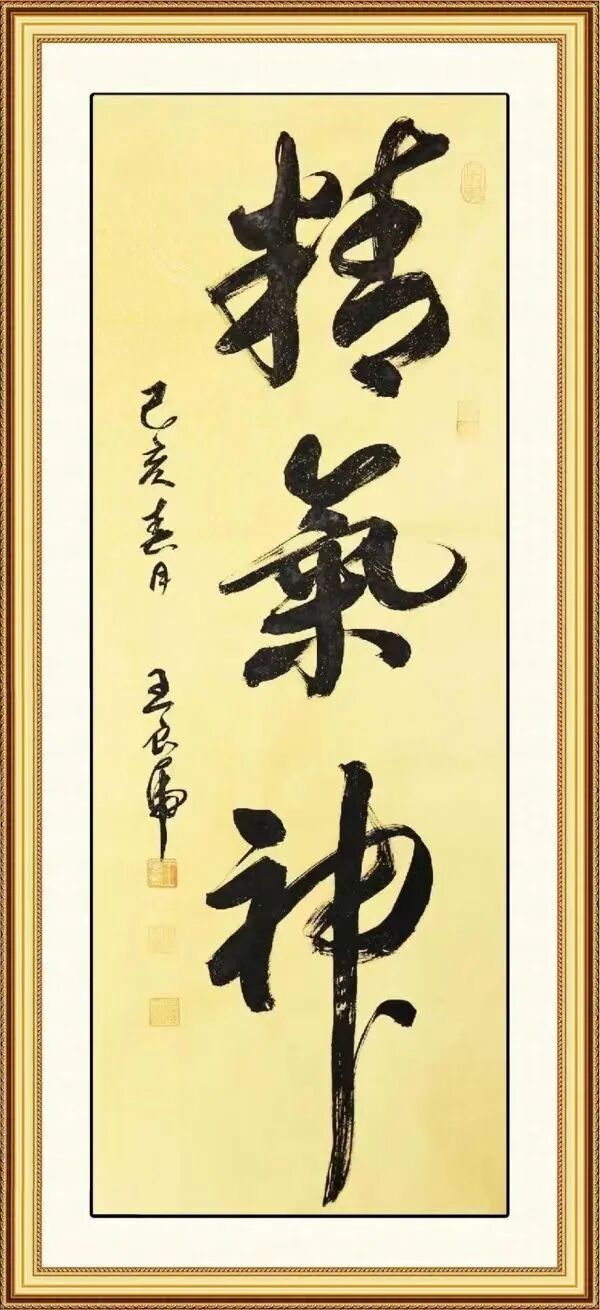 精氣神
己亥春月 王良虎